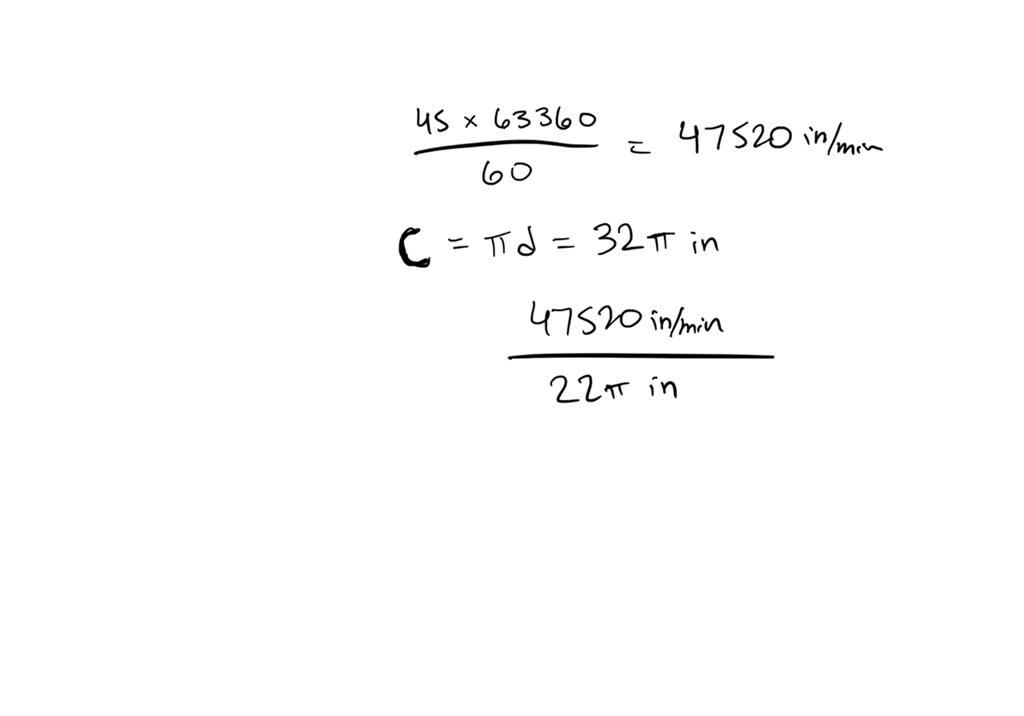 45 × 63360
60
= 47520 in/min
C = πd = 32π in
47520 in/min
22π in